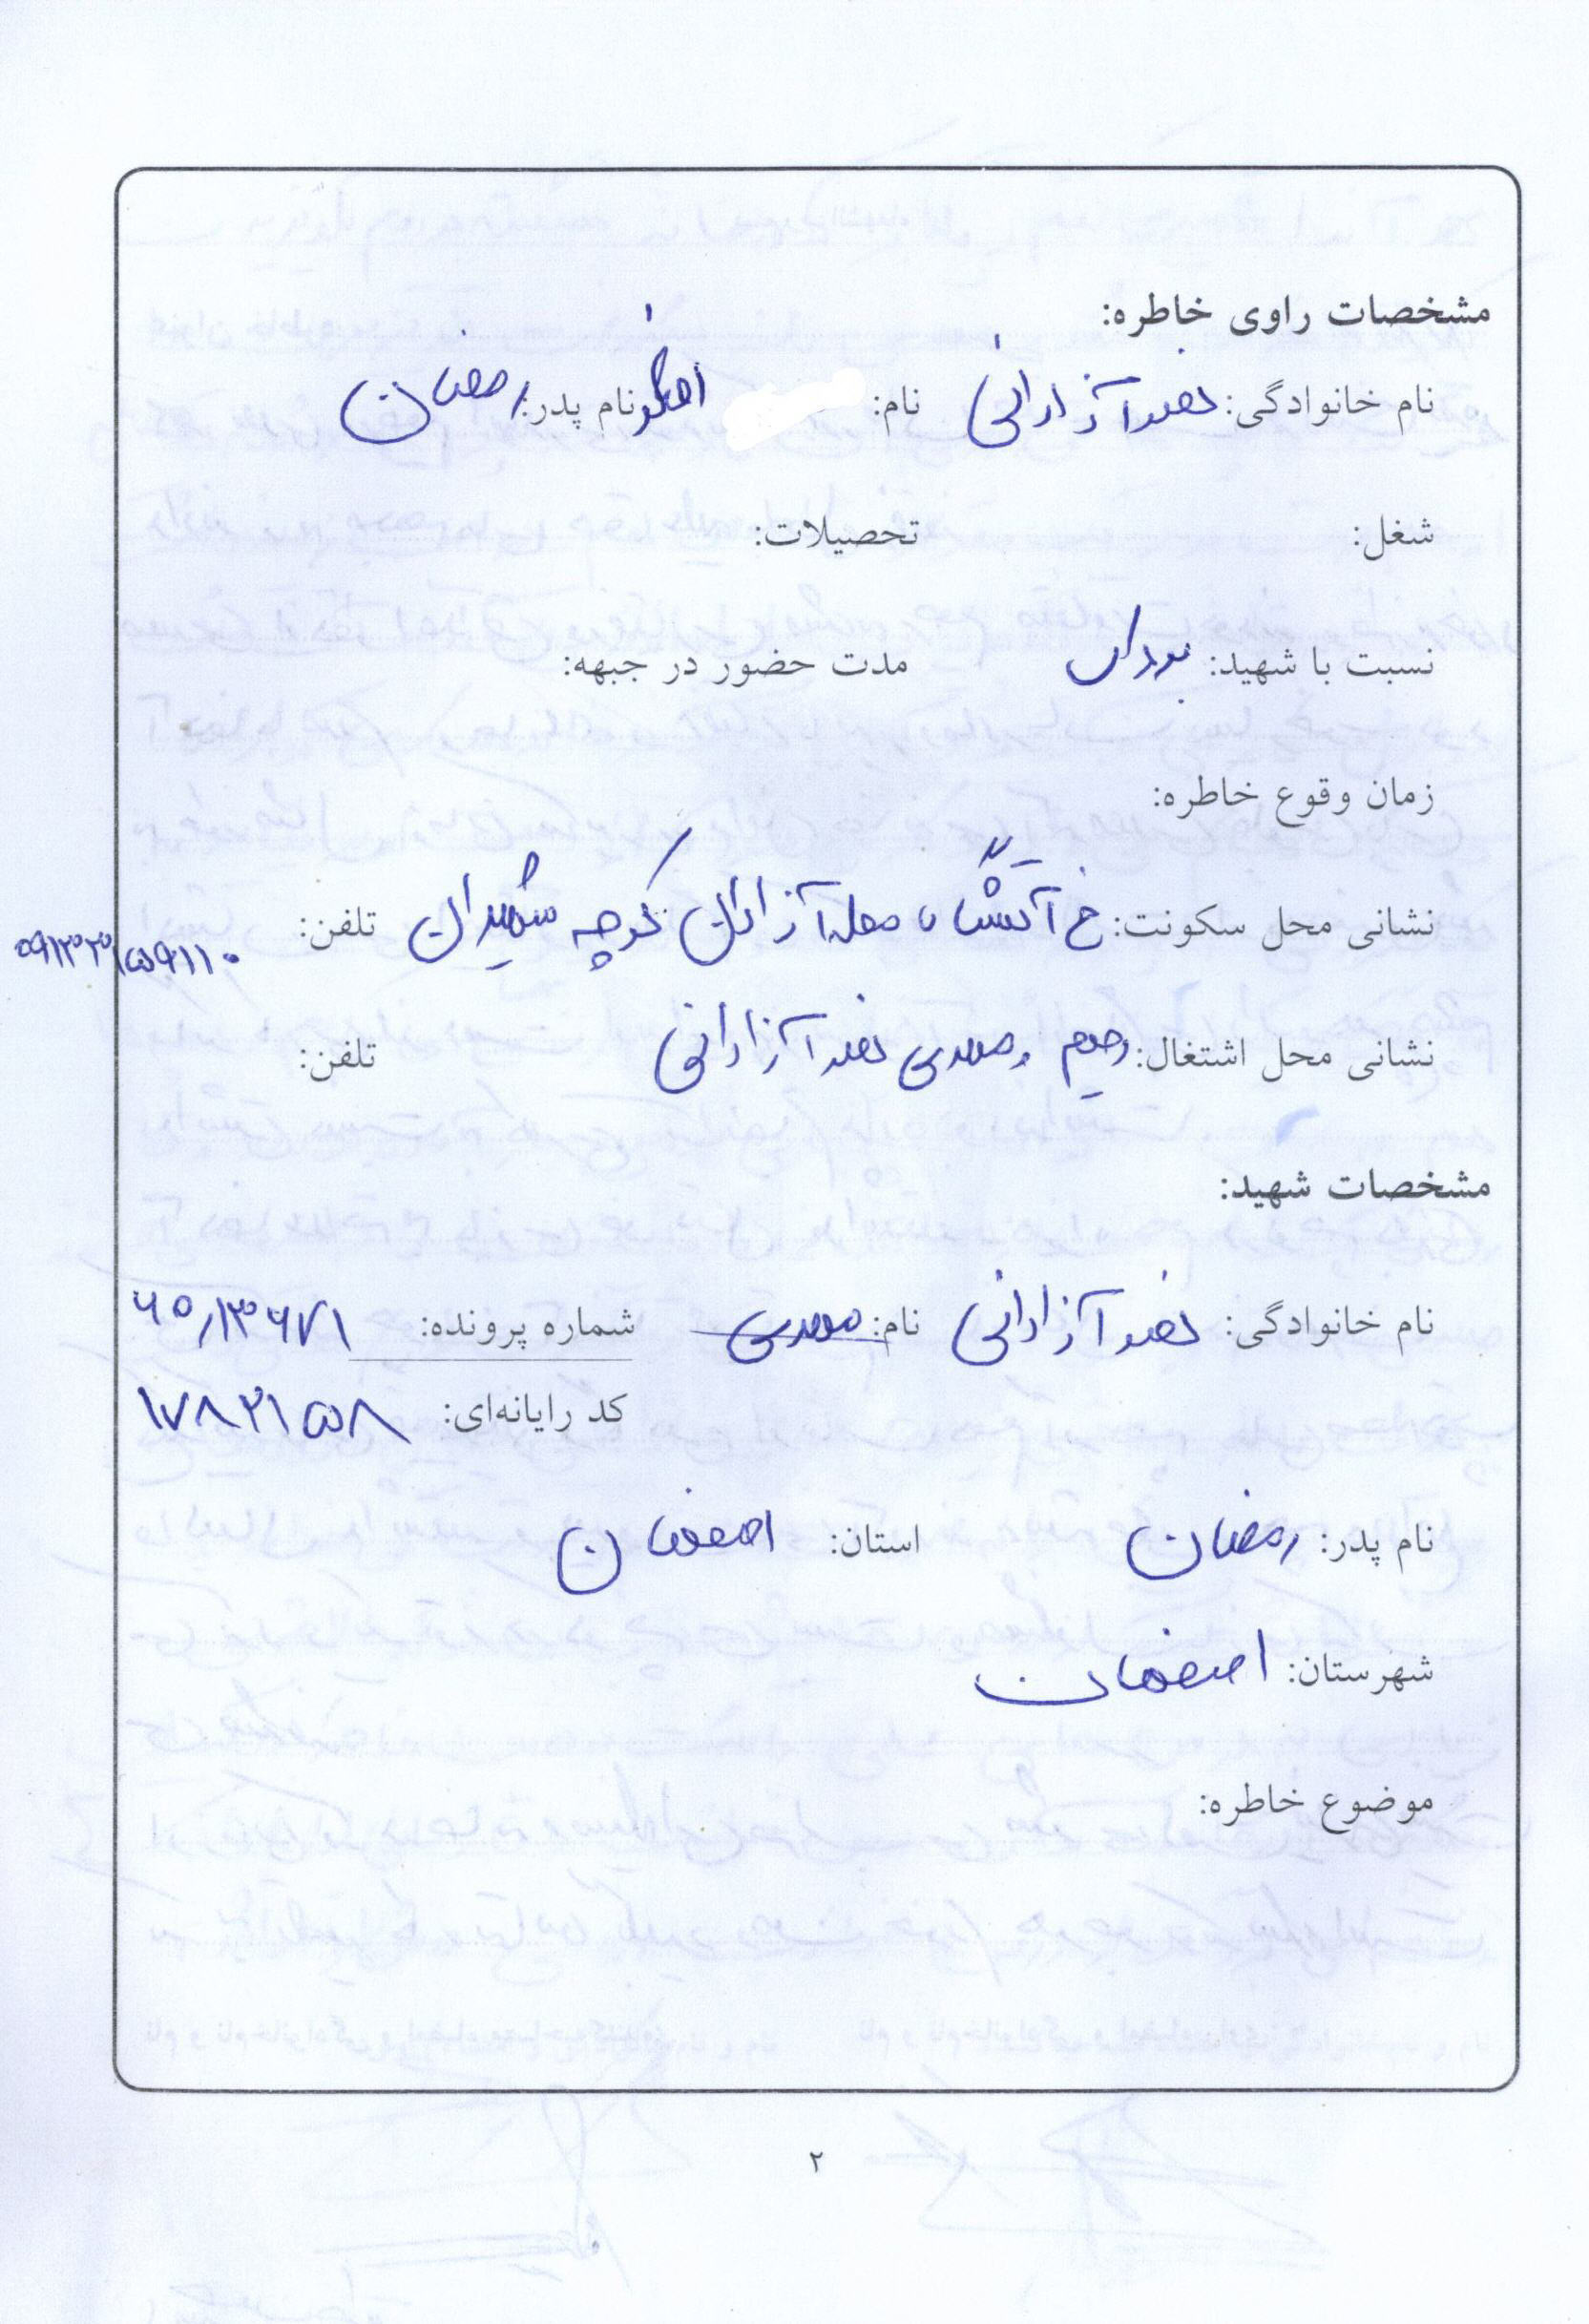 مشخصات راوی خاطره:
نام خانوادگی: نصر آزادانی نام: اصغر نام پدر: رمضان
شغل: تحصیلات:
نسبت با شهید: برادر مدت حضور در جبهه:
زمان وقوع خاطره:
نشانی محل سکونت: خ آتشگاه محله آزادان کوچه شهیدان تلفن:
نشانی محل اشتغال: رحیم و مهدی نصر آزادانی تلفن:
مشخصات شهید:
نام خانوادگی: نصر آزادانی نام: مهدی شماره پرونده: ۶۵٫۱۳۶۷۱
کد رایانه‌ای: ۱۷۸۲۱۵۸
نام پدر: رمضان استان: اصفهان
شهرستان: اصفهان
موضوع خاطره:
۲